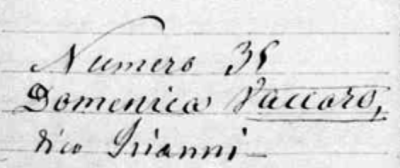 Numero 35
Domenica Vaccaro,
dico Srianni